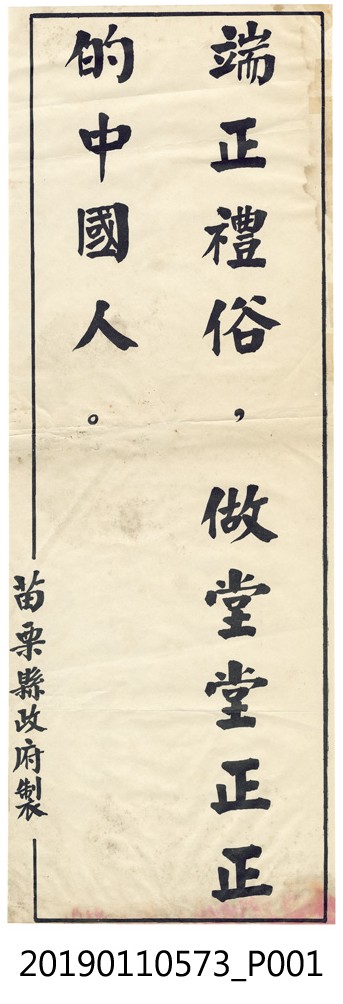 端正禮俗，做堂堂正正
的中國人。
苗栗縣政府製
20190110573_P001